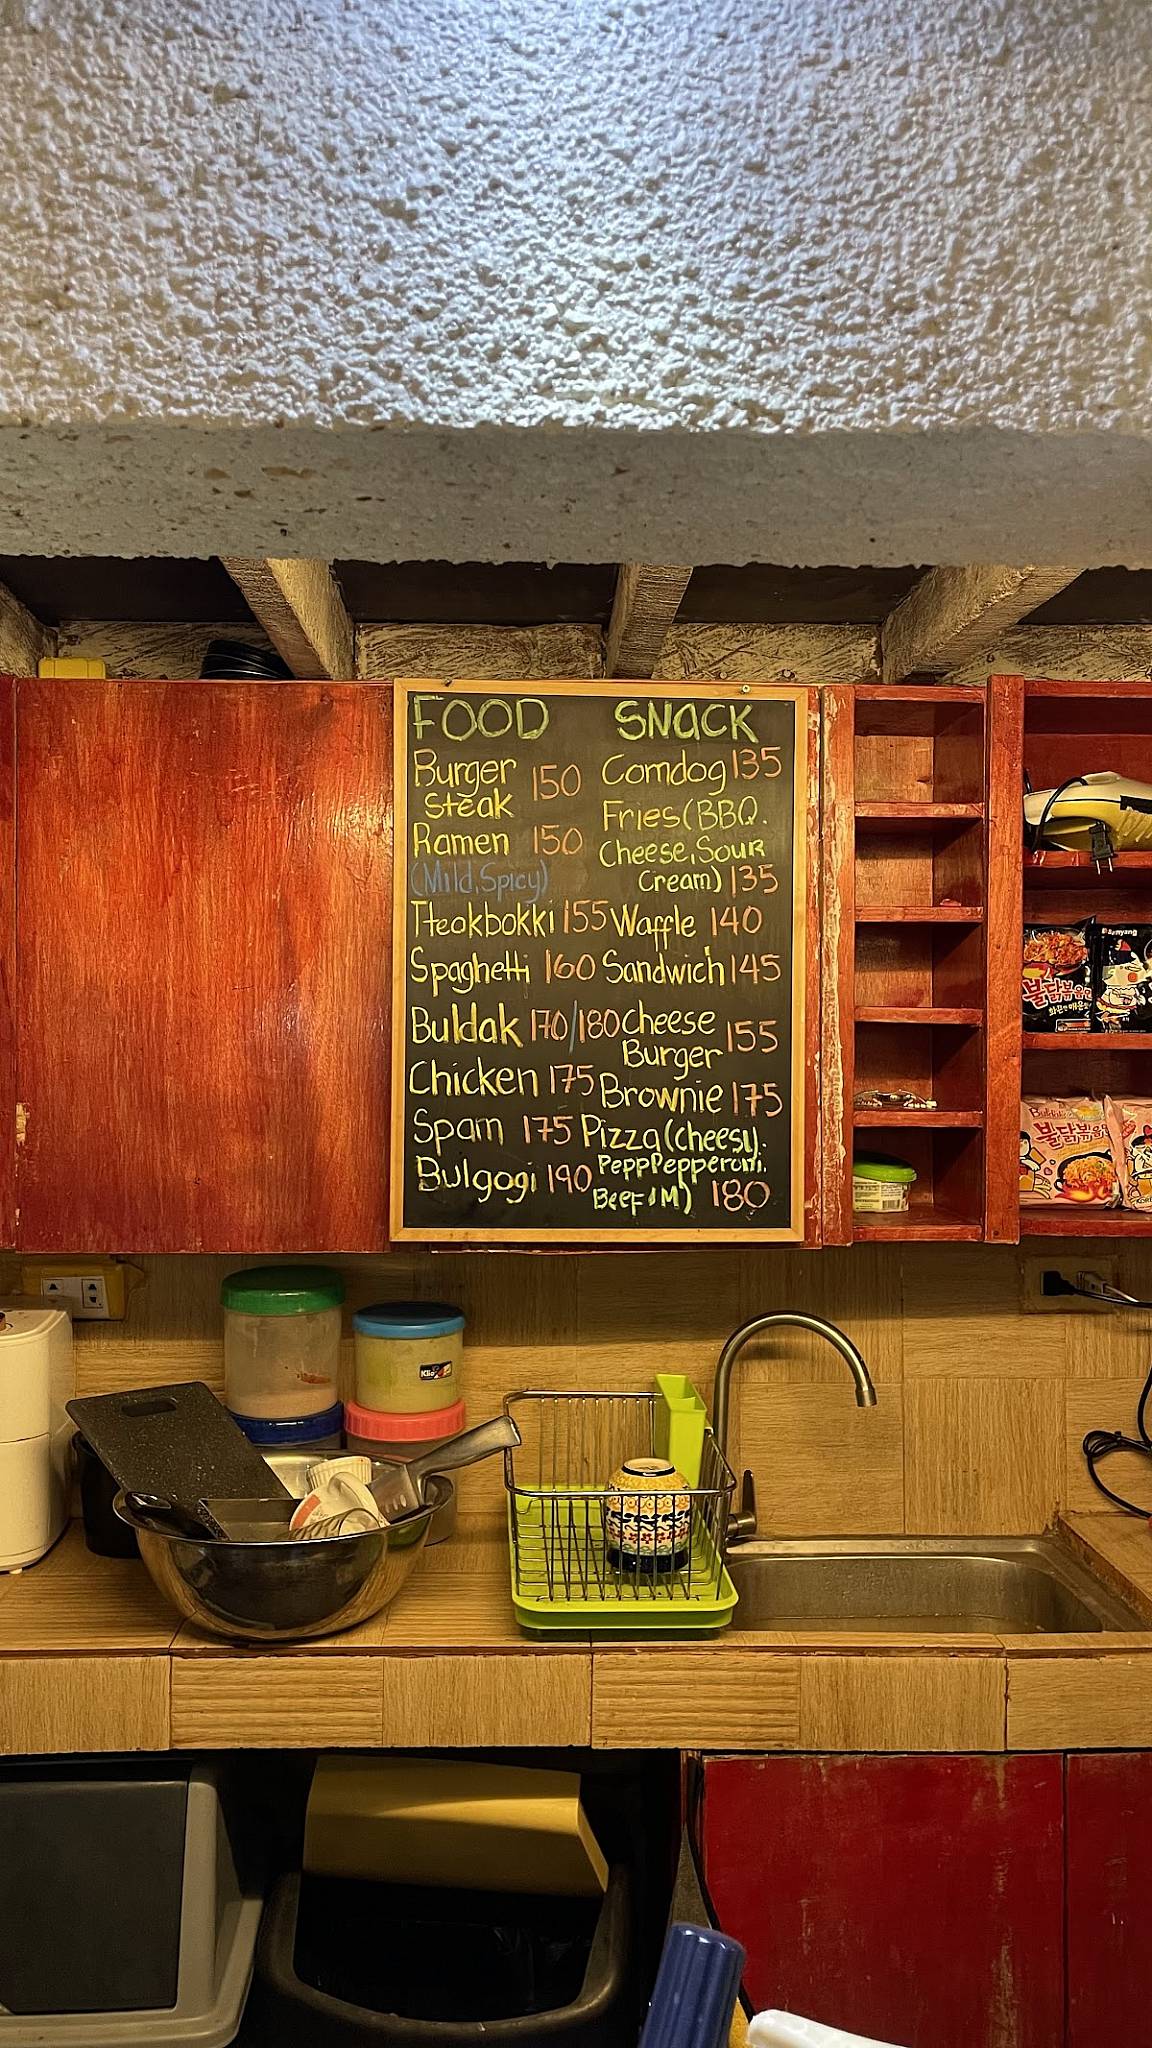 FOOD
Burger
Steak 150
Ramen 150
(Mild, Spicy)
Tteokbokki 155
Spaghetti 160
Buldak 170/180
Chicken 175
Spam 175
Bulgogi 190
SNACK
Corndog 135
Fries (BBQ.
Cheese, Sour
Cream) 135
Waffle 140
Sandwich 145
Cheese
Burger 155
Brownie 175
Pizza (cheesy.
PeppPepperoni.
180
Samyang
불닭볶음면
Buldak
불닭볶음면